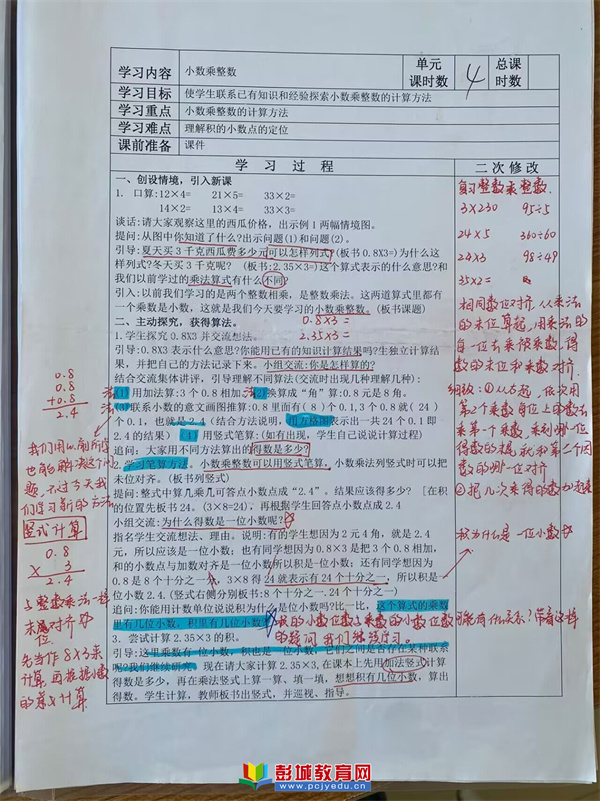 学习内容 小数乘整数 单元课时数 4 总课时数
学习目标 使学生联系已有知识和经验探索小数乘整数的计算方法
学习重点 小数乘整数的计算方法
学习难点 理解积的小数点的定位
课前准备 课件
学 习 过 程 二 次 修 改
一、创设情境，引入新课
1. 口算:12×4= 21×5= 33×2=
14×2= 13×4= 33×3=
谈话:请大家观察这里的西瓜价格，出示例1两幅情境图。
提问:从图中你知道了什么?出示问题(1)和问题(2)。
引导:夏天买3千克西瓜费多少元可以怎样列式?(板书0.8X3=)为什么这
样列式?冬天买3千克呢? (板书:2.35×3=)这个算式表示的什么意思?和
我们以前学过的乘法算式有什么不同?
引入:以前我们学习的是两个整数相乘，是整数乘法。这两道算式里都有
一个乘数是小数，这就是我们今天要学习的小数乘整数。(板书课题)
二、主动探究，获得算法。
0.8×3=
2.35×3=
1.学生探究0.8X3并交流想法。
引导:0.8X3表示什么意思?你能用已有的知识计算结果吗?生独立计算结
果，并把自己的方法记录下来。小组交流:你是怎样算的?
结合交流集体讲评，引导理解不同算法(交流时出现几种理解几种):
(1)用加法算:3个0.8相加。(2)换算成“角”算:0.8元是8角。
(3)联系小数的意义画图推算:0.8里面有(8)个0.1,3个0.8就(24)
个0.1，也就是2.4(结合方法说明，用方格图表示出一共24个0.1即
2.4的结果) (4)用竖式笔算:(如有出现，学生自己说说计算过程)
追问:大家用不同方法算出的得数是多少?
2.学习笔算方法。小数乘整数可以用竖式笔算，小数乘法列竖式时可以把
末位对齐。(板书列竖式)
提问:整式中算几乘几可答点小数点成“2.4”。结果应该得多少? [在积
的位置先板书24。(3×8=24)，再根据学生回答点小数点成2.4
小组交流:为什么得数是一位小数呢?
指名学生交流想法、理由。说明:有的学生想因为2元4角，就是2.4
元，所以应该是一位小数；也有同学想因为0.8×3是把3个0.8相加，
和的小数点与加数对齐是一位小数所以积是一位小数；还有同学想因为
0.8是8个十分之一，3×8得24就表示有24个十分之一，所以积是一
位小数2.4.(竖式右侧分别板书:8个十分之一.24个十分之一)
追问:你能用计数单位说说积为什么是位小数吗?比一比，这个算式的乘数
里有几位小数，积里有几位小数?
3. 尝试计算2.35×3的积。
引导:这里乘数有一位小数，积也是一位小数，它们之间是否存在某种联系
呢?我们继续研究。现在请大家计算2.35×3,在课本上先用加法竖式计算
得数是多少，再在乘法竖式上算一算、填一填，想想积有几位小数，算出
得数。学生计算，教师板书出竖式，并巡视、指导。
复习整数乘整数.
3×230 95÷5
24×5 360÷60
24×3 98÷49
35×2=
相同数位对齐,从乘法
的末位算起,用乘法的
积为什么是一位小数
0.8
0.8
+0.8
2.4
竖式计算
0.8
× 3
2.4
与整数乘法一样
末位对齐
先当作8×3来
计算
彭城教育网
www.pcjyedu.cn